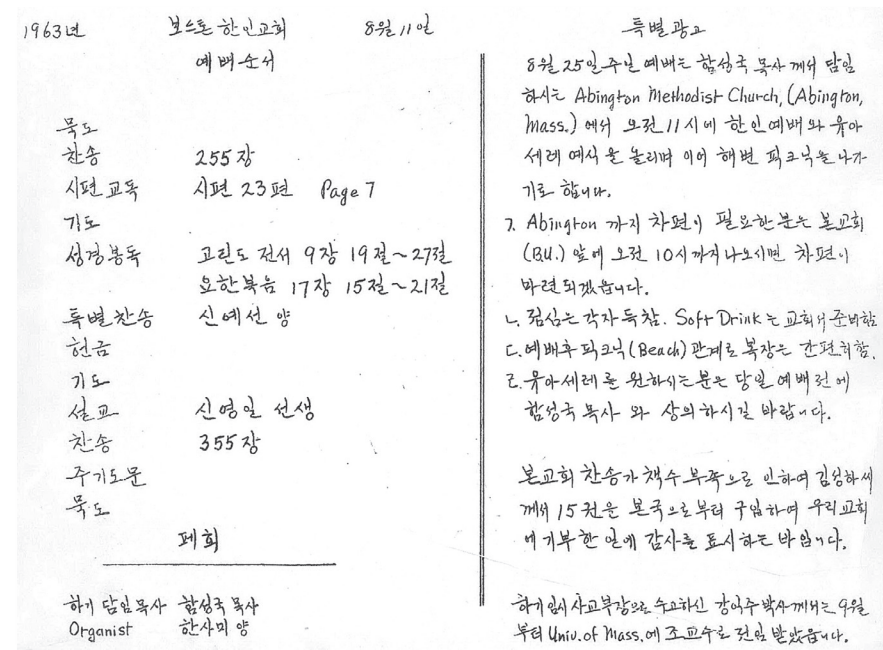 1963년 보스톤 한인교회 8월 11일
예배순서
묵도
찬송 255장
시편교독 시편 23편 Page 7
기도
성경봉독 고린도 전서 9장 19절~27절
요한복음 17장 15절~21절
특별찬송 신예선 양
헌금
기도
설교 신영일 선생
찬송 355장
주기도문
묵도
폐회
하기 담임목사 함성국 목사
Organist 한사미 양
특별광고
8월 25일 주일 예배는 함성국 목사께서 담임
하시는 Abington Methodist Church, (Abington,
Mass.) 에서 오전 11시에 한인예배와 유아
세례 예식을 올리며 이어 해변 피크닉을 나가
기로 합니다.
ㄱ. Abington 까지 차편이 필요한 분은 본교회
(BU.) 앞에 오전 10시까지 나오시면 차편이
마련되겠읍니다.
ㄴ. 점심은 각자 독참. Soft Drink는 교회서 준비함
ㄷ. 예배후 피크닉(Beach) 관계로 복장은 간편히함.
ㄹ. 유아세례를 원하시는 분은 당일 예배전에
함성국 목사 와 상의하시길 바랍니다.
본교회 찬송가 책수 부족으로 인하여 김성하씨
께서 15권을 본국으로부터 구입하여 우리교회
에 기부한 일에 감사를 표시하는 바입니다.
하기 임시 사교부장으로 수고하신 강익주 박사께서는 9월
부터 Univ. of Mass.에 조교수로 전임 받았읍니다.